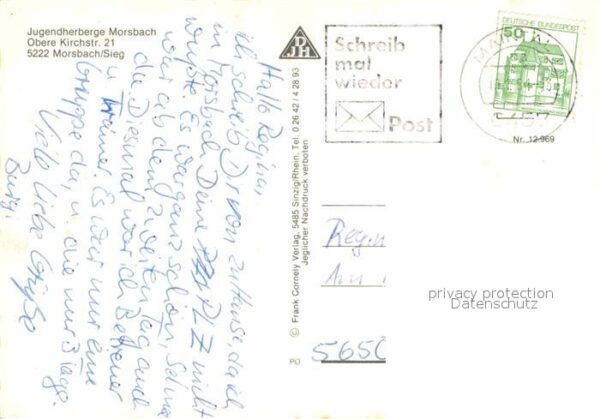 Jugendherberge Morsbach
Obere Kirchstr. 21
5222 Morsbach/Sieg
Hallo Regina,
ich schreib Dir von zuHause, da ich
in Morsbach Deine PLZ nicht
wußte. Es war ganz schön, Schnee
war ab dem zweiten Tag auch
da. Diesmal war ich Betreuer
u. Trainer. Es war nur eine
Gruppe da, u. die nur 3 Tage.
Viele liebe Grüße
DJH
© Frank Cornely Verlag, 5485 Sinzig/Rhein, Tel. 0 26 42 / 4 28 93
Jeglicher Nachdruck verboten
PO
Schreib
mal
wieder
Post
DEUTSCHE BUNDESPOST
50
Nr. 12-969
Regin
Am
5650
privacy protection
Datenschutz